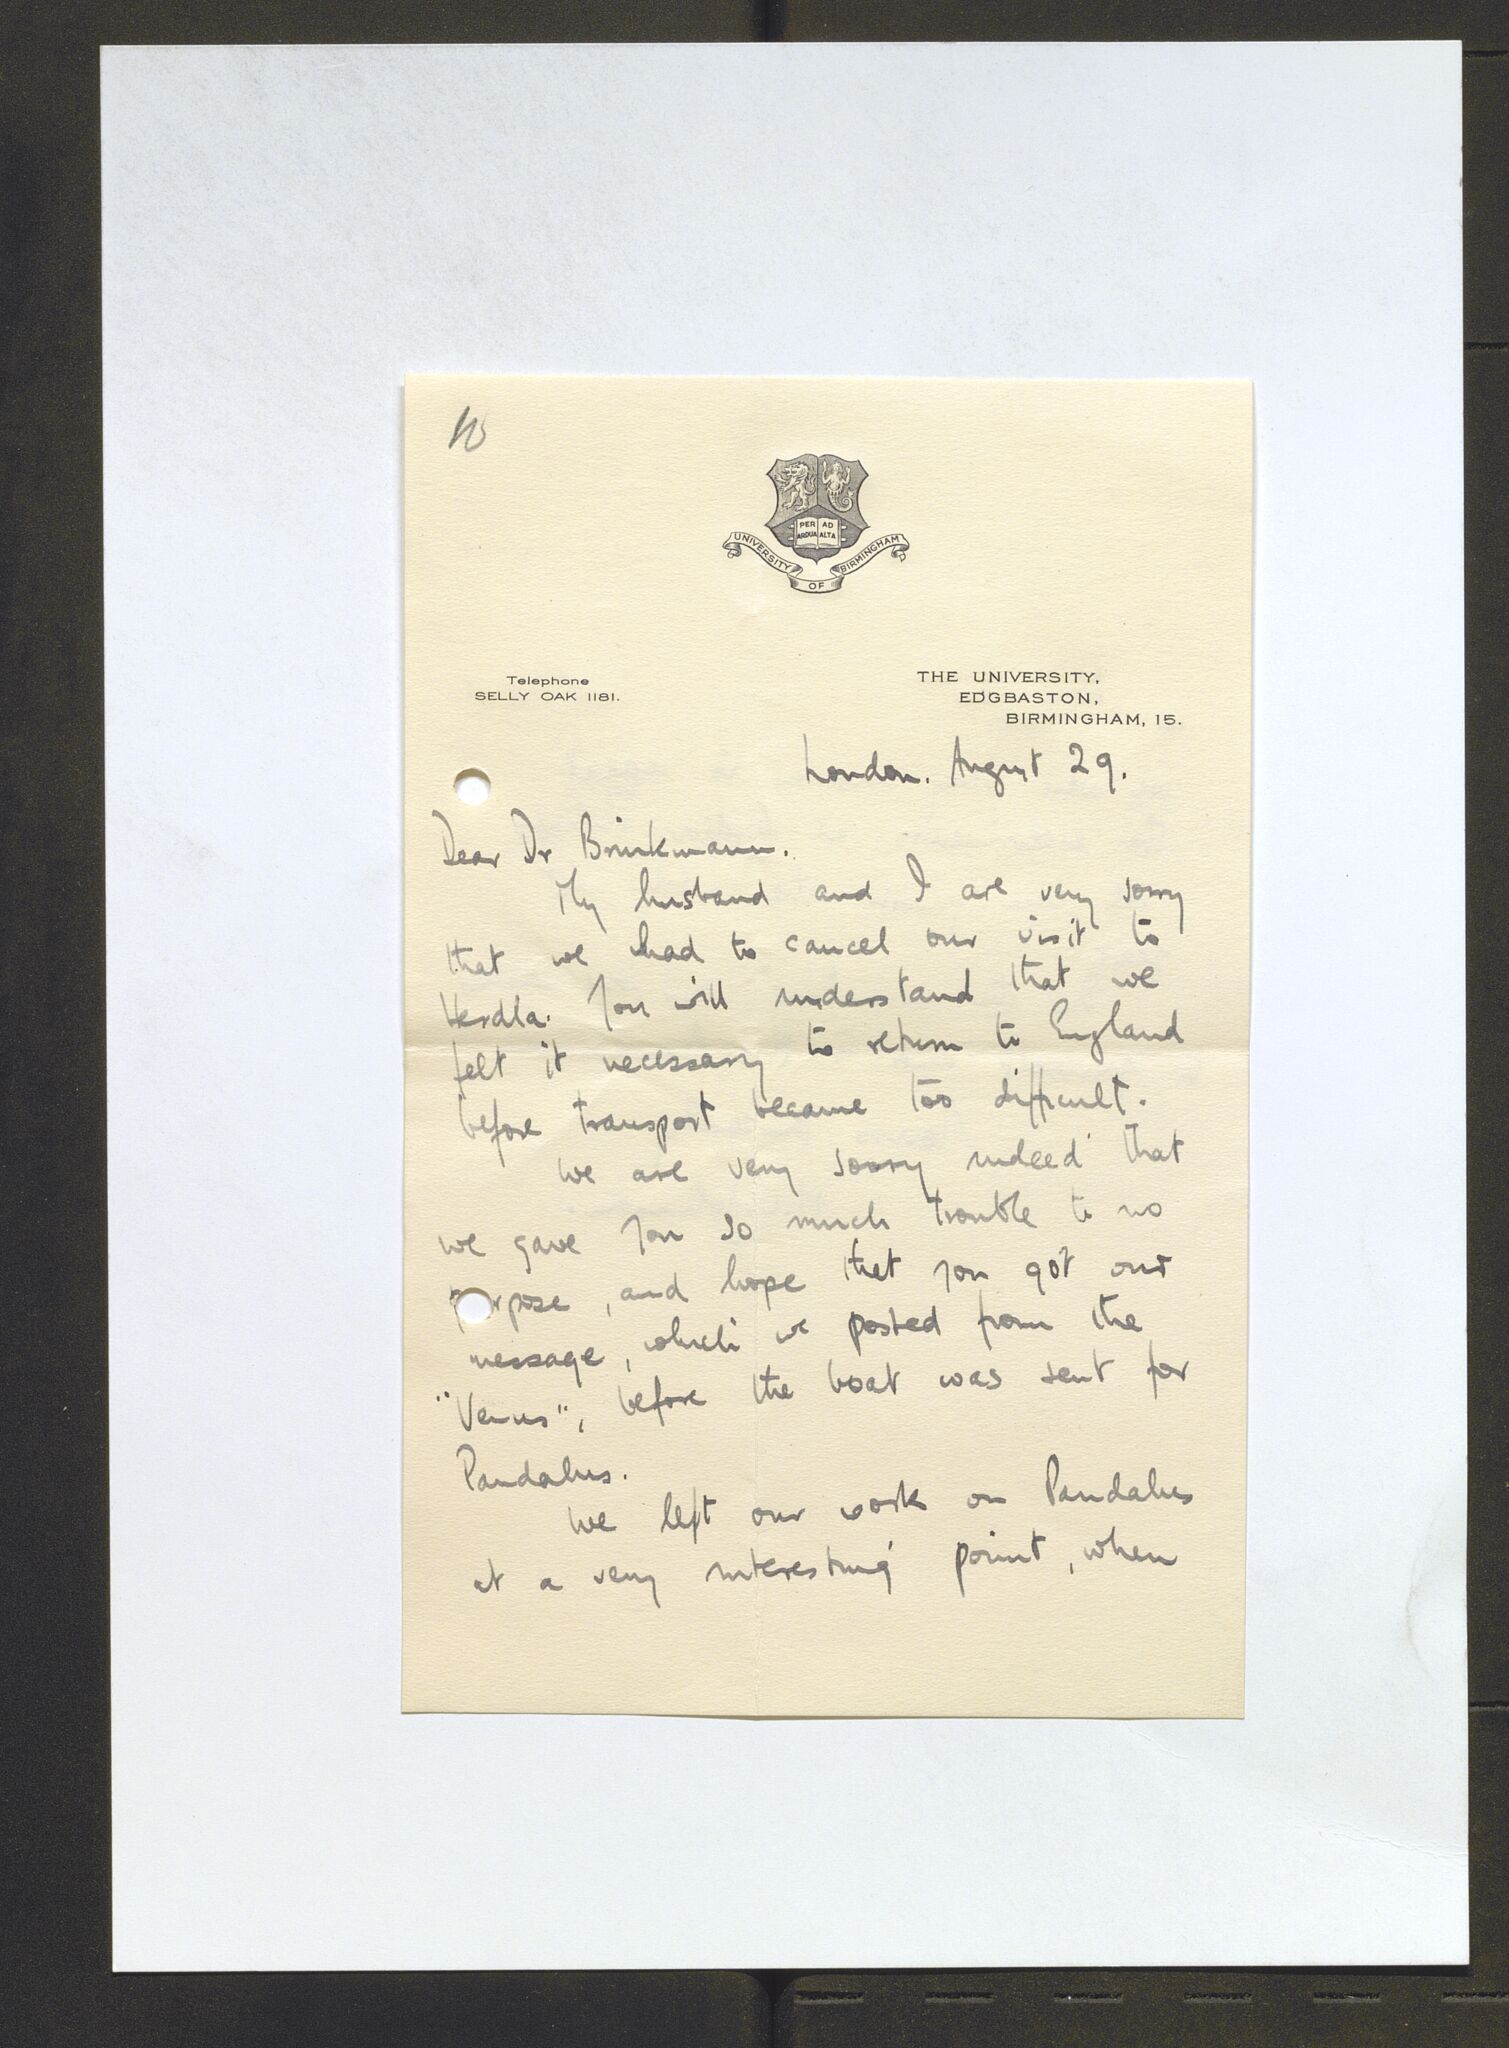 PER AD
ARDUA ALTA
UNIVERSITY OF BIRMINGHAM
Telephone
SELLY OAK 1181.
THE UNIVERSITY,
EDGBASTON,
BIRMINGHAM, 15.
London. August 29.
Dear Dr Brinkmann.
My husband and I are very sorry
that we had to cancel our visit to
Herdla. You will understand that we
felt it necessary to return to England
before transport became too difficult.
We are very sorry indeed that
we gave you so much trouble to no
purpose, and hope that you got our
message, which we posted from the
"Venus", before the boat was sent for
Pandalus.
We left our work on Pandalus
at a very interesting point, when